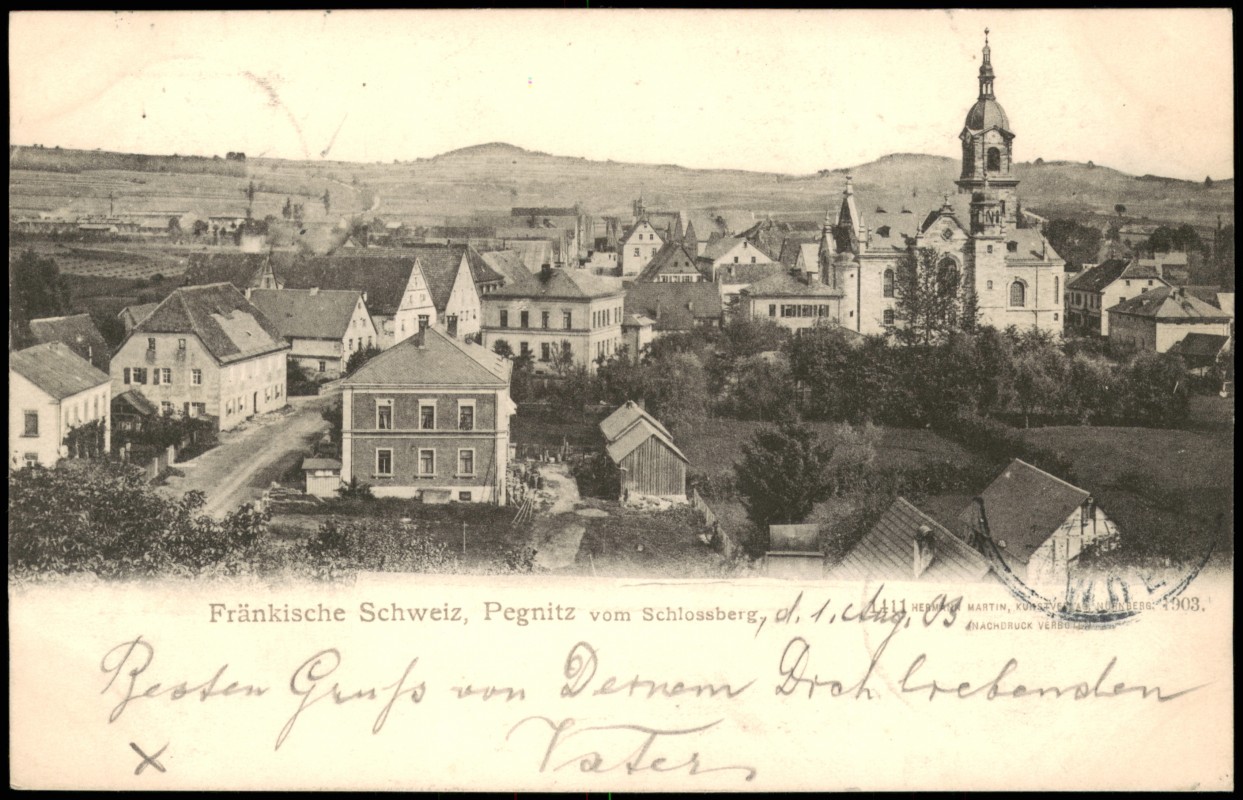 Fränkische Schweiz, Pegnitz vom Schlossberg, d. 1. Aug. 03
1411 HERMANN MARTIN, KUNSTVERLAG, NÜRNBERG. 1903.
(NACHDRUCK VERBOTEN)
Besten Gruß von Deinem Dich liebenden
Vater
X